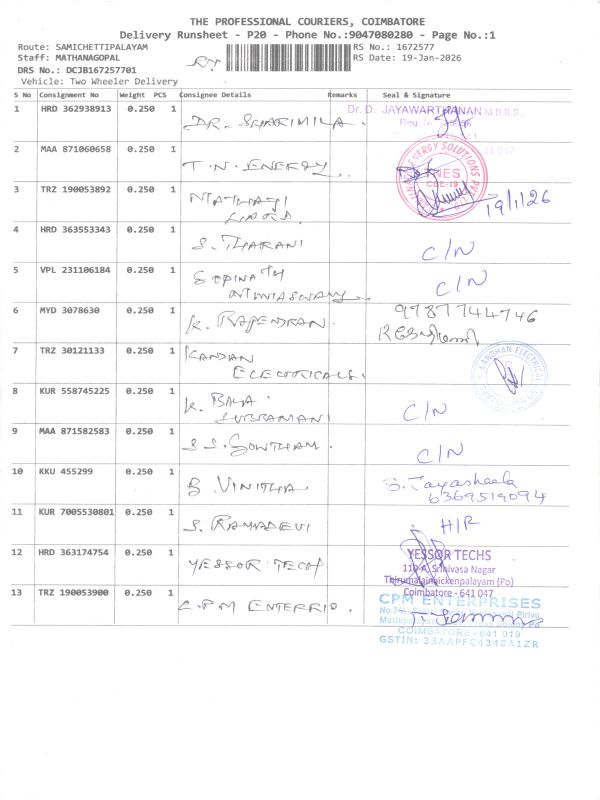 THE PROFESSIONAL COURIERS, COIMBATORE
Delivery Runsheet - P20 - Phone No.:9047080280 - Page No.:1
Route: SAMICHETTIPALAYAM
RS No.: 1672577
Staff: MATHANAGOPAL
RS Date: 19-Jan-2026
DRS No.: DCJB167257701
Vehicle: Two Wheeler Delivery
S No Consignment No Weight PCS Consignee Details Remarks Seal & Signature
1 HRD 362938913 0.250 1 DR. SHARIMILA. Dr. D. JAYAWARTHANAN M.B.B.S.,
2 MAA 871060658 0.250 1 T.N. ENERGY.
ENERGY SOLUTIONS
CBE-19
3 TRZ 190053892 0.250 1 19/1/26
4 HRD 363553343 0.250 1 S. THARANI C/N
5 VPL 231106184 0.250 1 GOPINATH C/N
6 MYD 3078630 0.250 1 K. RAJENDRAN. 9787744746
7 TRZ 30121133 0.250 1 KANDAN
ELECTRICALS.
KANDHAN ELECTRICAL
8 KUR 558745225 0.250 1 K. BALA
SUBRAMANI C/N
9 MAA 871582583 0.250 1 S.S. GOWTHAM. C/N
10 KKU 455299 0.250 1 B VINITHA B. Jayasheela
6369519094
11 KUR 7005530801 0.250 1 S. RAMADEVI H/R
12 HRD 363174754 0.250 1 YESSOR TECH YESSOR TECHS
Srinivasa Nagar
Thirumalainaickenpalayam (Po)
Coimbatore - 641 047
13 TRZ 190053900 0.250 1 C.P.M ENTERPRIS. CPM ENTERPRISES
COIMBATORE - 641 019
GSTIN: 33AAPFC4348A1ZR